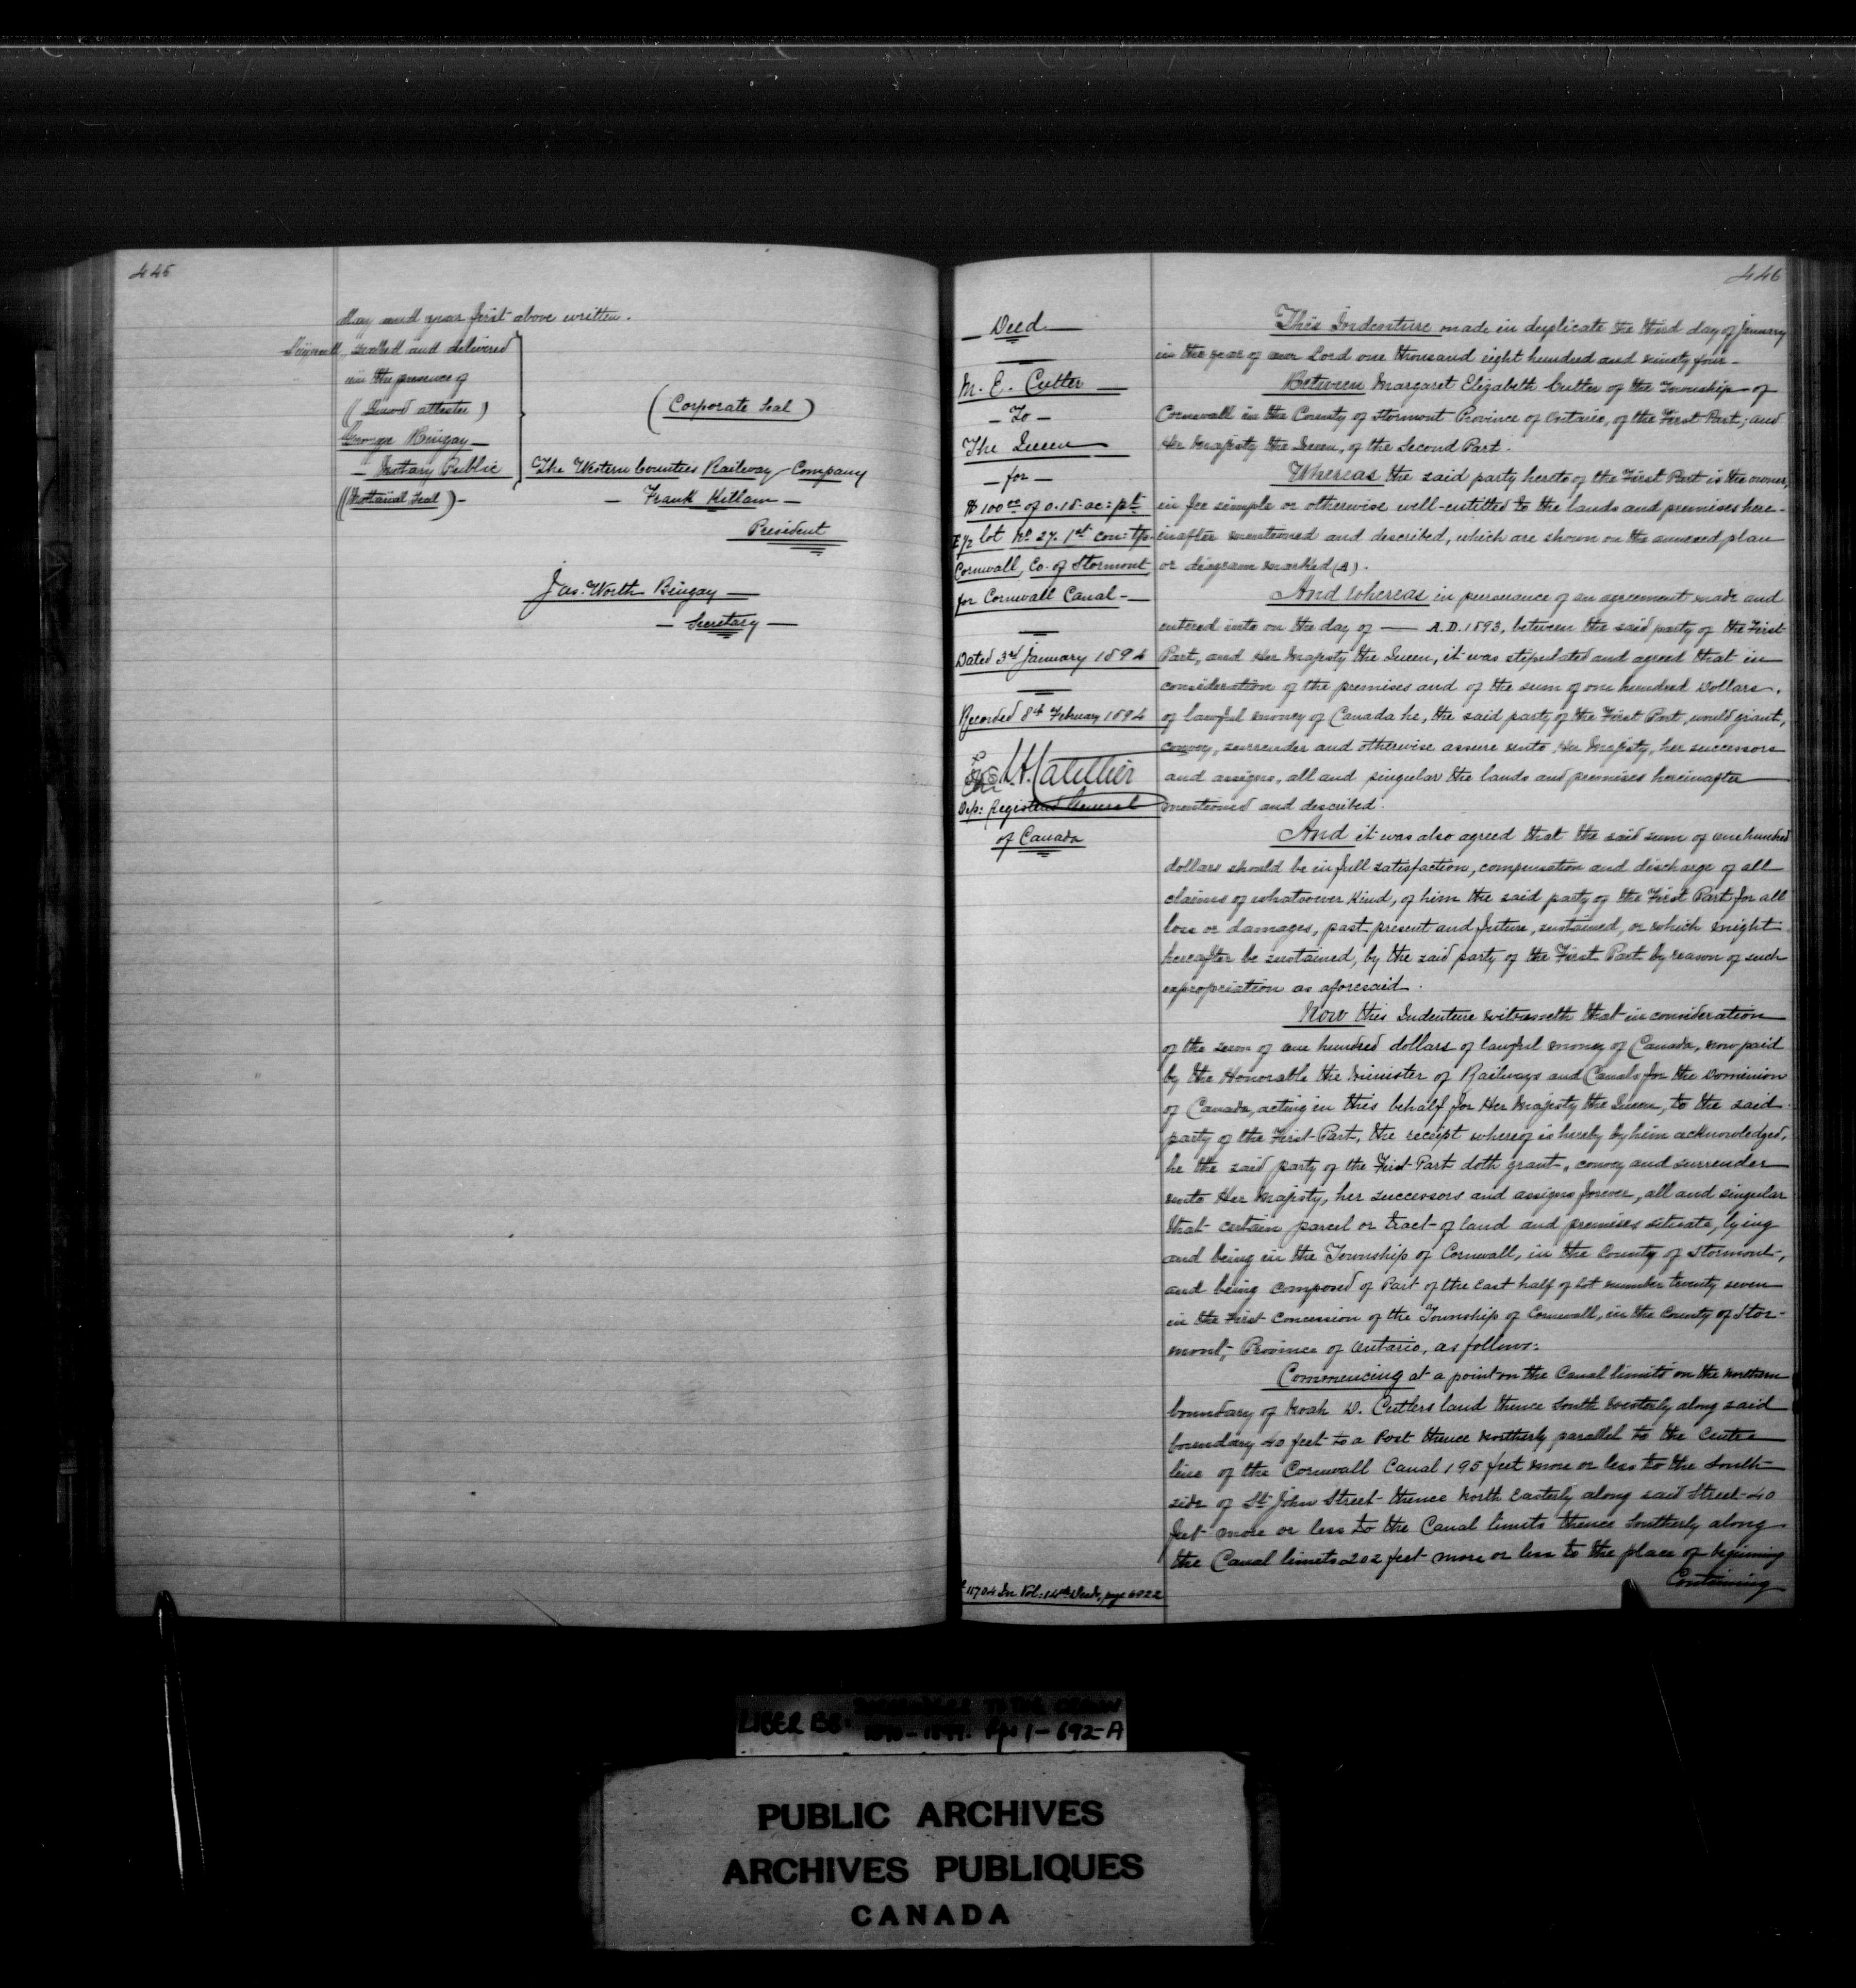 445
day and year first above written.
Signed, sealed and delivered
in the presence of
(Sam'd attester)
George Bingay
Notary Public
(Notarial Seal)
(Corporate Seal)
The Western Counties Railway Company
Frank Killam
President
Jas. Worth Bingay
Secretary
446
Deed
M. E. Cutler
To
The Queen
for
$100.00 of 0.18 ac: pt
E 1/2 lot No 27. 1st con: tp.
Cornwall, Co. of Stormont
for Cornwall Canal
Dated 3rd January 1894
Recorded 8th February 1894
Dep: Registrar General
of Canada
This Indenture made in duplicate the third day of January
in the year of our Lord one thousand eight hundred and ninety four
Between Margaret Elizabeth Cutler of the Township of
Cornwall in the County of Stormont Province of Ontario, of the First Part; and
Her Majesty the Queen, of the Second Part.
Whereas the said party hereto of the First Part is the owner,
in fee simple or otherwise well-entitled to the lands and premises here-
inafter mentioned and described, which are shown on the annexed plan
or diagram marked (A).
And whereas in pursuance of an agreement made and
entered into on the day of — A.D. 1893, between the said party of the First
Part, and Her Majesty the Queen, it was stipulated and agreed that in
consideration of the premises and of the sum of one hundred Dollars,
of lawful money of Canada he, the said party of the First Part, would grant,
convey, surrender and otherwise assure unto Her Majesty, her successors
and assigns, all and singular the lands and premises hereinafter
mentioned and described.
And it was also agreed that the said sum of one hundred
dollars should be in full satisfaction, compensation and discharge of all
claims of whatsoever kind, of him the said party of the First Part for all
loss or damages, past present and future, sustained, or which might
hereafter be sustained, by the said party of the First Part by reason of such
expropriation as aforesaid.
Now this Indenture witnesseth that in consideration
of the sum of one hundred dollars of lawful money of Canada, now paid
by the Honorable the Minister of Railways and Canals for the Dominion
of Canada, acting in this behalf for Her Majesty the Queen, to the said
party of the First Part, the receipt whereof is hereby by him acknowledged,
he the said party of the First Part doth grant, convey and surrender
unto Her Majesty, her successors and assigns forever, all and singular
that certain parcel or tract of land and premises situate, lying
and being in the Township of Cornwall, in the County of Stormont,
and being composed of Part of the East half of Lot number twenty seven
in the First Concession of the Township of Cornwall, in the County of Stor-
mont, Province of Ontario, as follows:
Commencing at a point on the Canal limits on the Northern
boundary of Noah D. Cutlers land thence South Westerly along said
boundary 40 feet to a Post thence Northerly parallel to the Centre
line of the Cornwall Canal 195 feet more or less to the South
side of St John Street thence North Easterly along said Street 40
feet more or less to the Canal limits thence Southerly along
the Canal limits 202 feet more or less to the place of beginning
Containing
11704 In Vol: 14th Deeds, page 6022
LIBER BB: SURRENDERS TO THE CROWN
1890-1894. Pp 1-692-A
PUBLIC ARCHIVES
ARCHIVES PUBLIQUES
CANADA